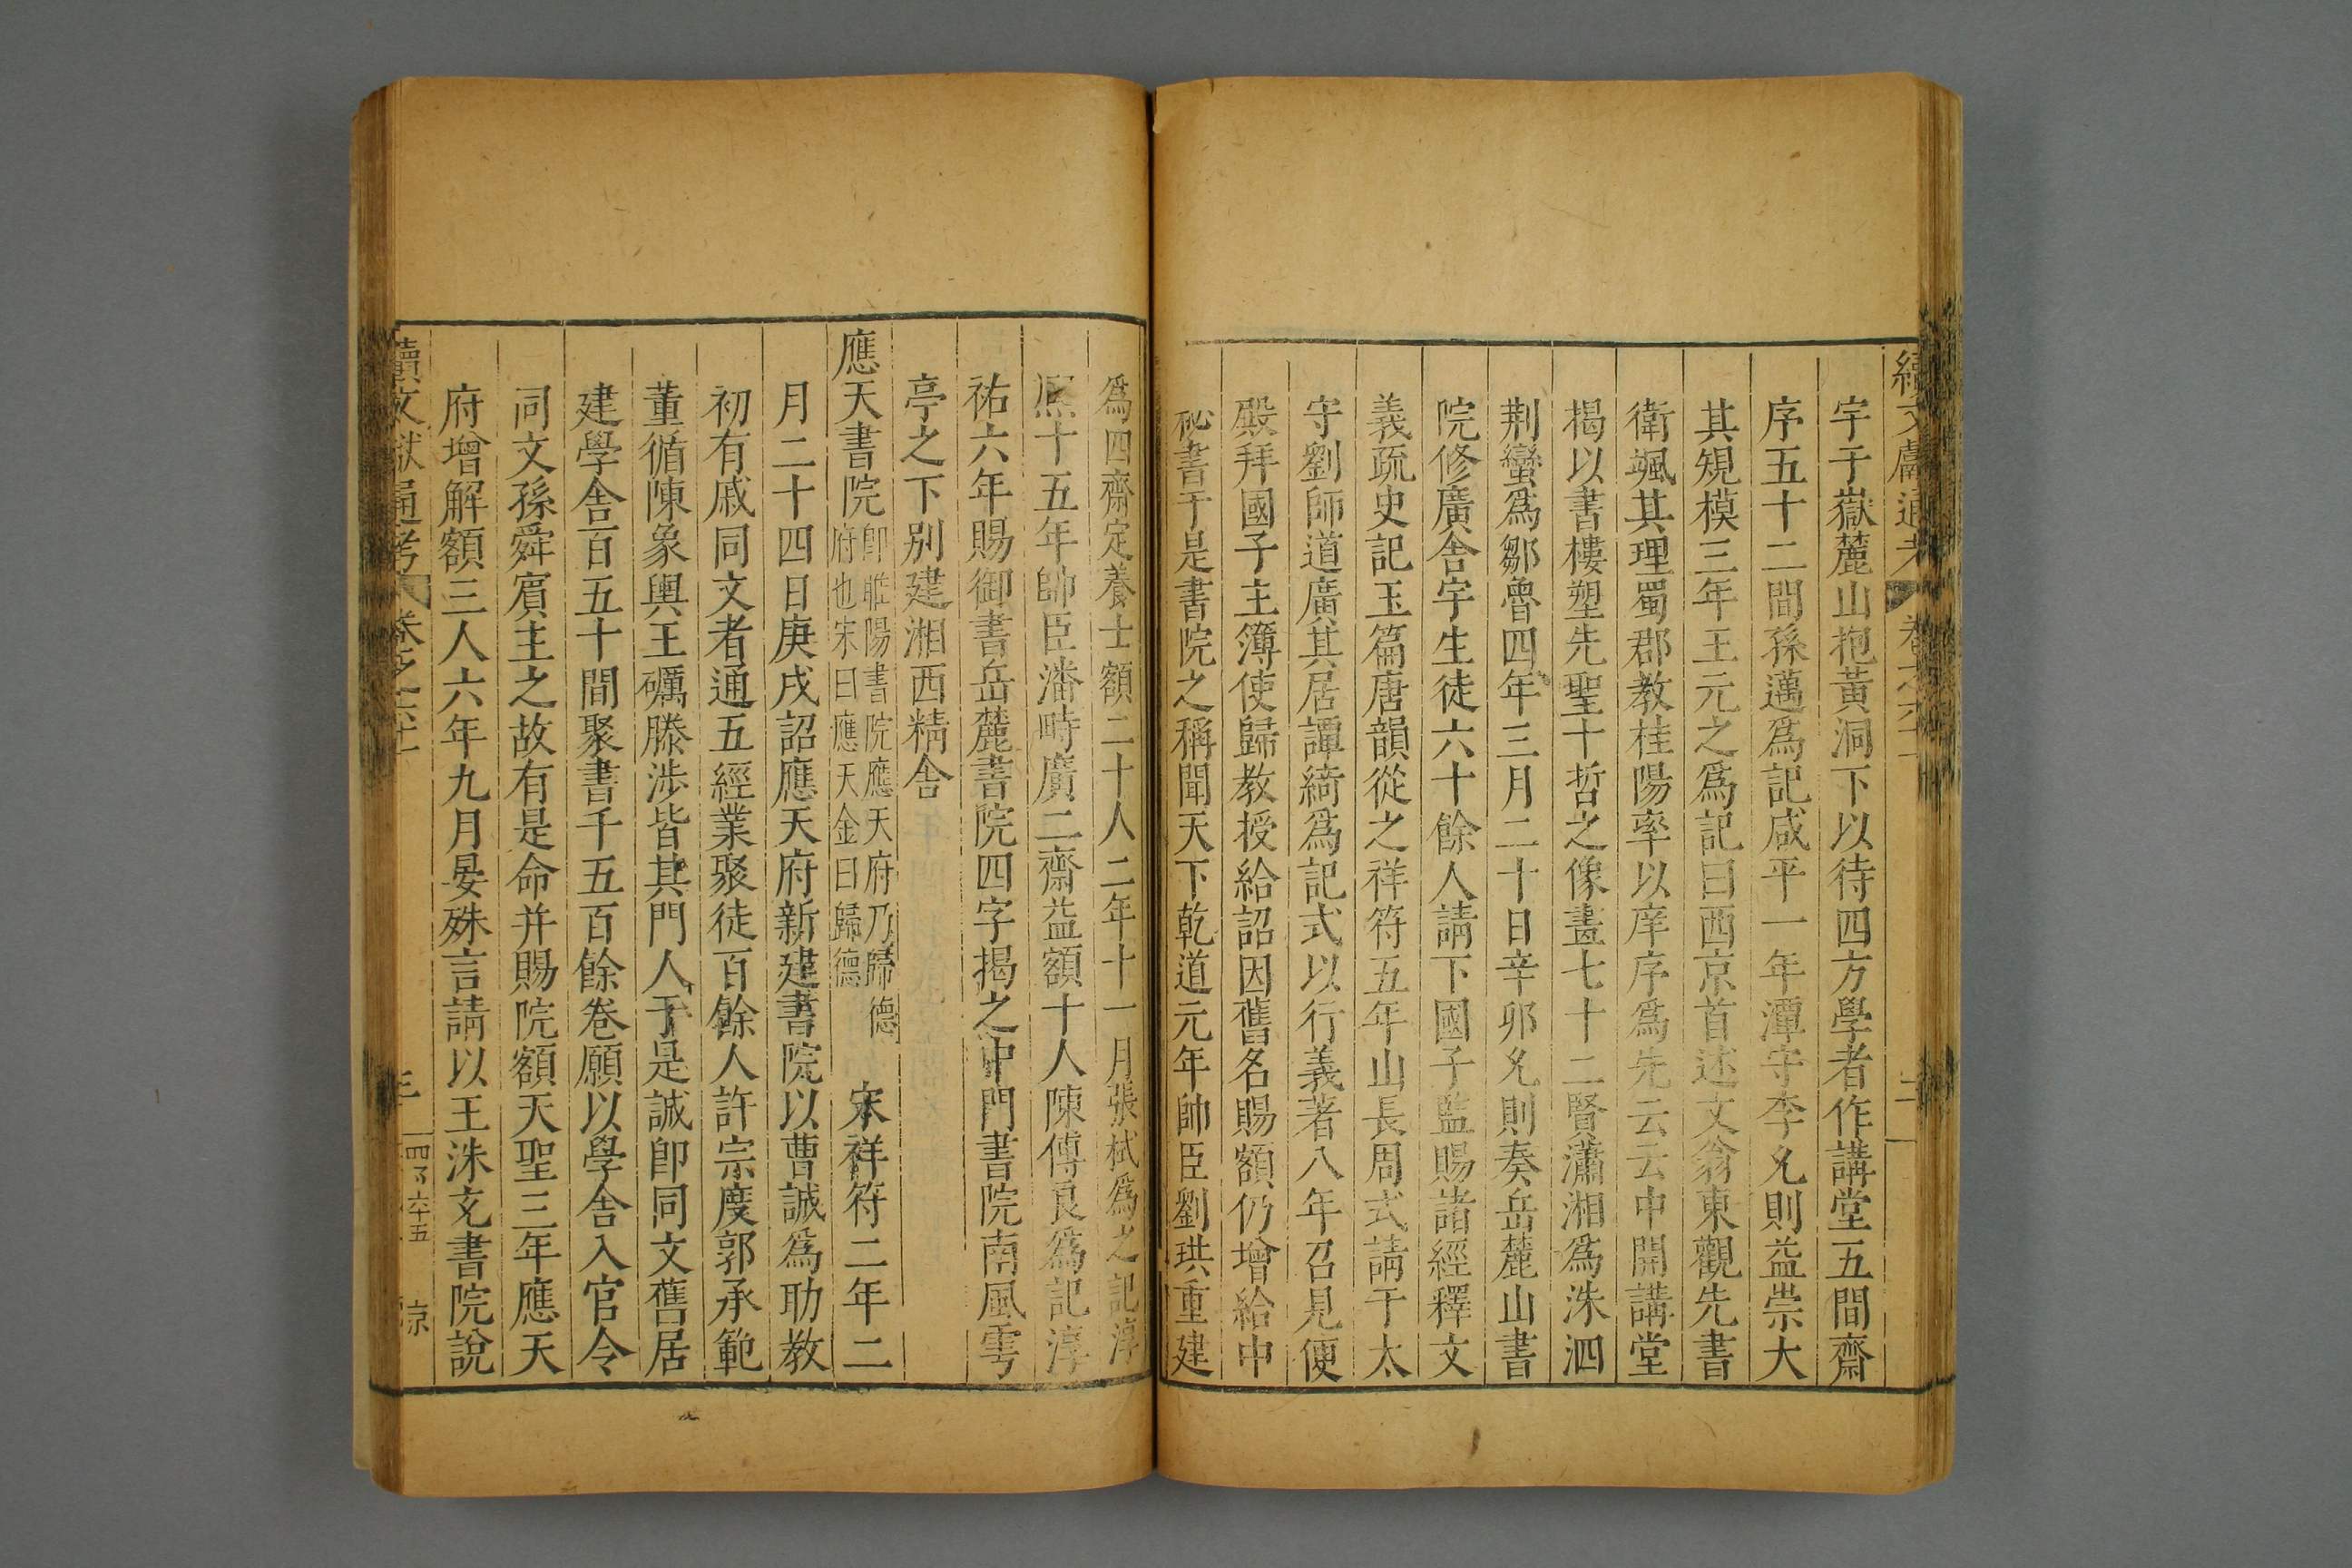 續文獻通考 卷之六十一 二
宇于嶽麓山抱黃洞下以待四方學者作講堂五間齋
序五十二間孫邁爲記咸平一年潭守李允則益崇大
其䂓模三年王元之爲記曰西京首述文翁東觀先書
衛颯其理蜀郡教桂陽率以庠序爲先云云中開講堂
揭以書樓塑先聖十哲之像畫七十二賢瀟湘爲洙泗
荆蠻爲鄒魯四年三月二十日辛卯允則奏岳麓山書
院修廣舍宇生徒六十餘人請下國子監賜諸經釋文
義疏史記玉篇唐韻從之祥符五年山長周式請于太
守劉師道廣其居譚綺爲記式以行義著八年召見便
殿拜國子主簿使歸教授給詔因舊名賜額仍增給中
秘書于是書院之稱聞天下乾道元年帥臣劉珙重建
爲四齋定養士額二十人二年十一月張栻爲之記淳
熈十五年帥臣潘畤廣二齋益額十人陳傅良爲記淳
祐六年賜御書岳麓書院四字揭之中門書院南風雩
亭之下别建湘西精舍
應天書院 卽睢陽書院應天府乃歸德府也宋曰應天金曰歸德 宋祥符二年二
月二十四日庚戌詔應天府新建書院以曹誠爲助教
初有戚同文者通五經業聚徒百餘人許宗度郭承範
董循陳象輿王礪滕涉皆其門人于是誠卽同文舊居
建學舍百五十間聚書千五百餘卷願以學舍入官令
同文孫舜賓主之故有是命并賜院額天聖三年應天
府增解額三人六年九月晏殊言請以王洙充書院說
續文獻通考 卷之六十一 三